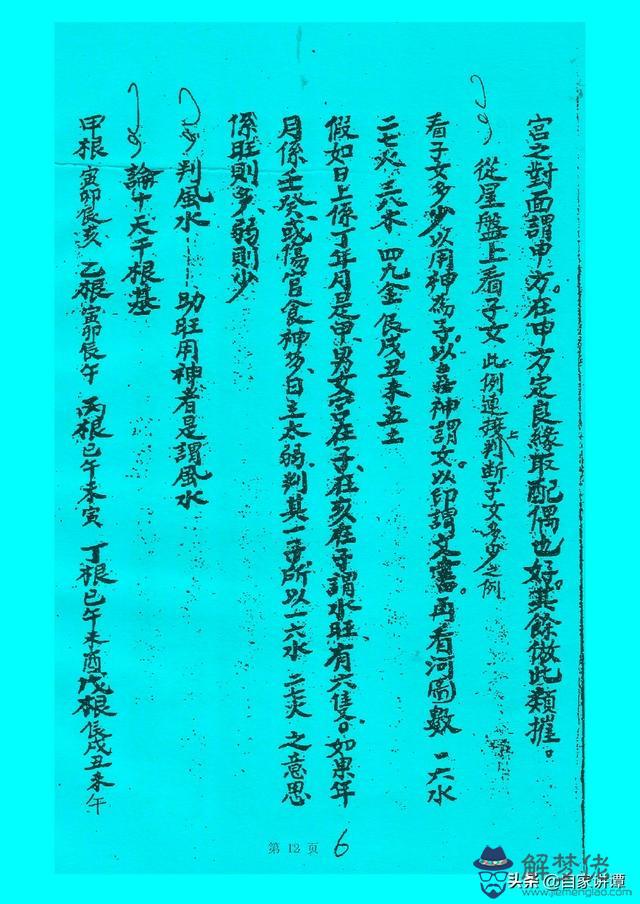 宫之對面謂申方。在申方定良緣取配偶也好。其餘倣此類推。
從星盤上看子女 此例連接上判断子女多少之例
看子女多少以用神為子。以喜神謂女。以印謂文書。再看河圖數 一六水
二七火 三八木 四九金 辰戌丑未五土
假如日上係丁年月是甲、男女宫在子、在亥在子謂水旺、有六隻。如果年
月係壬癸、或傷官食神多、日主太弱、判其一子所以一六水 二七火 之意思
係旺則多、弱則少
判風水——助旺用神者是謂風水
論十天干根基
甲根 寅卯辰亥 乙根 寅卯辰午 丙根 巳午未寅 丁根 巳午未酉 戊根 辰戌丑未午
第 12 页 6
解梦佬
www.jiemenglao.com
头条 @自家讲谭